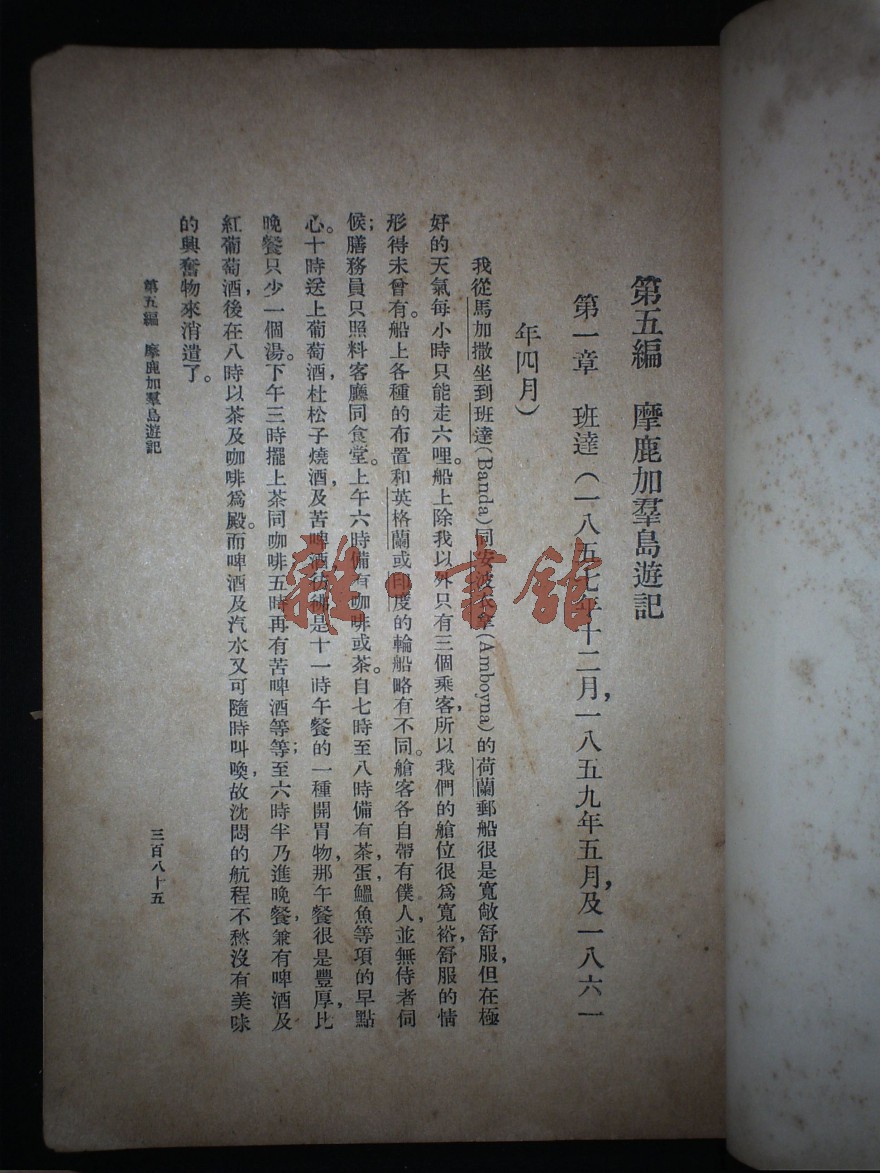 第五編　摩鹿加羣島遊記
第一章　班達（一八五七年十二月，一八五九年五月，及一八六一
年四月）
我從馬加撒坐到班達(Banda)同安波不拿(Amboyna)的荷蘭郵船很是寬敞舒服，但在極
好的天氣每小時只能走六哩。船上除我以外只有三個乘客，所以我們的艙位很爲寬裕，舒服的情
形得未曾有。船上各種的布置和英格蘭或印度的輪船略有不同。艙客各自帶有僕人，並無侍者伺
候；膳務員只照料客廳同食堂。上午六時備有咖啡或茶。自七時至八時備有茶，蛋，鰮魚等項的早點
心。十時送上葡萄酒，杜松子燒酒，及苦啤酒彷彿是十一時午餐的一種開胃物，那午餐很是豐厚，比
晚餐只少一個湯。下午三時擺上茶同咖啡；五時再有苦啤酒等等；至六時半乃進晚餐，兼有啤酒及
紅葡萄酒，後在八時以茶及咖啡爲殿。而啤酒及汽水又可隨時叫喚，故沈悶的航程不愁沒有美味
的興奮物來消遣了。
第五編　摩鹿加羣島遊記
三百八十五
雜·書館